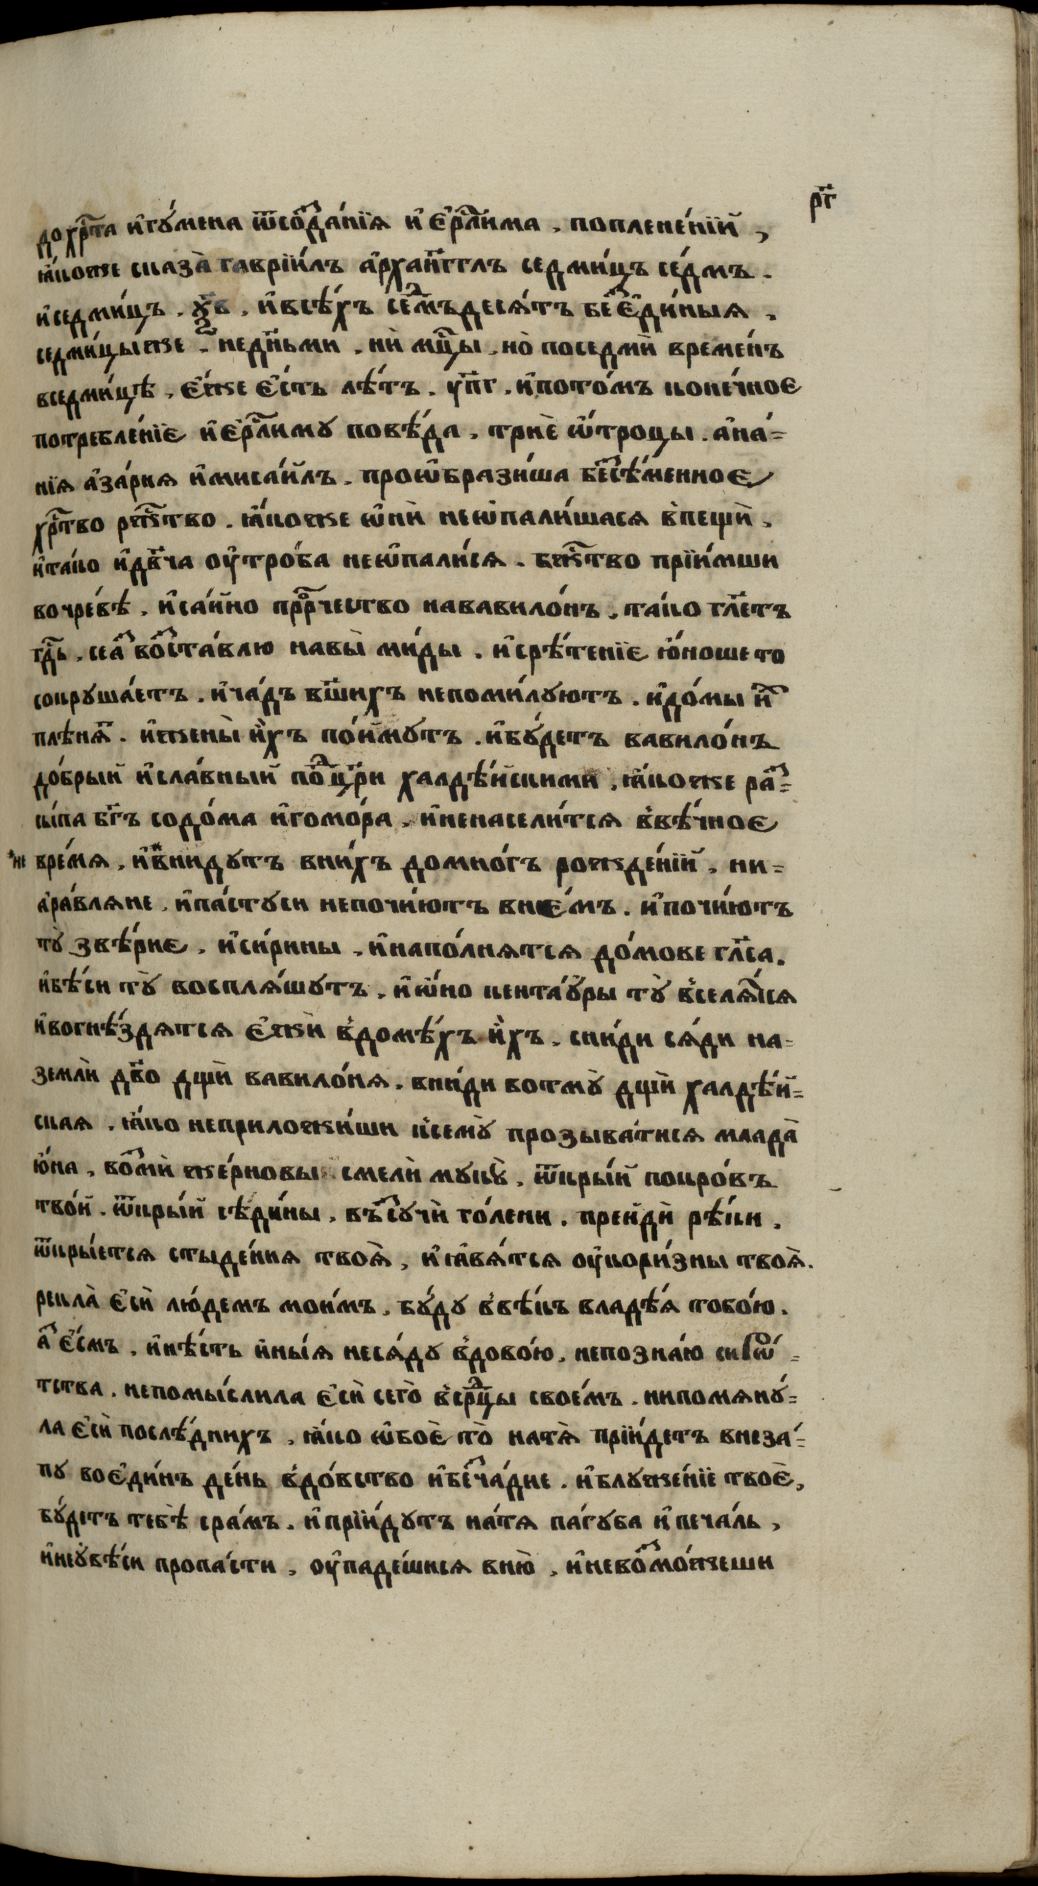 р҃г
до хрⷭ҇та и҆гꙋ́мена ѿсозⷣа́нїѧ и҆є҆рⷭ҇ли́ма , поплене́нїй ,
ꙗ҆́коже сказа̀ гаврїи́лъ а҆рха́нг҃глъ седми́цъ се́дмъ .
и҆седми́цъ . ѯ҃в , и҆всѣ́хъ се́дмъдесѧ́тъ беⷥє҆ди́ныѧ ,
седми́цыже . неднь҃ми , ни̑ мцⷭ҇ы , но̀ поседмѝ време́нъ
вседми́цѣ , є҆́же є҆́сть лѣ́тъ . у҃пг , и҆пото́мъ коне́чное
потребле́нїе и҆є҆рⷭ҇ли́му повѣ́да , триѐ ѻ҆́троцы . а҆на́-
нїѧ а҆за́риѧ и҆мисаи́лъ . проѡ҆брази́ша беⷥсѣ́менное
хрⷭ҇тво ржⷭ҇тво . ꙗ҆́коже ѻ҆нѝ неѡ҆пали́шасѧ в̾пещѝ ,
и҆та́ко и҆дв҃ча оу҆тро́ба неѡ҆пали́сѧ . бжⷭ҇тво прїи́мши
вочре́вѣ , и҆са́йно прⷪ҇рчество нававило́нъ , та́ко гл҃етъ
гдⷭ҇ь , сеаⷥ воⷥста́влю навы̀ ми́ды . и҆срѣ́тенїе ю҆́ношето
сокруша́етъ . и҆ча́дъ вш҃ихъ непоми́луютъ . и҆до́мы иⷯ
плѣнѧ́тъ . и҆жены̀ и҆́хъ по́ймутъ . и҆бꙋ́детъ вавило́нъ
до́брый и҆сла́вный поⷣцр҃и халдѣ́йскими , ꙗ҆́коже раⷥ-
сы́па бг҃ъ содо́ма и҆гомо́ра , и҆ненасели́тсѧ в̾вѣ́чное
*не вре́мѧ , и҆вни́дутъ вни́хъ домно́гъ рожде́нїй , ни-
а҆ра́влѧне , и҆па́стуси непочи́ютъ вне́мъ . и҆почи́ютъ
тꙋ̀ звѣ́рие , и҆си́рины , и҆напо́лнѧтсѧ до́мове гл҃са .
и҆бѣ́си тꙋ̀ воспля́шутъ , и҆ѻ҆́но кента́ѵры тꙋ̀ в̾селѧ́тсѧ
и҆вогнѣ́здѧтсѧ є҆жѝ в̾домѣ́хъ и҆́хъ , сни́ди сѧ́ди на-
землѝ дв҃о дщѝ вавило́нѧ . вни́ди вотмꙋ̀ дщѝ халдѣ́й-
скаѧ . ꙗ҆́ко неприложи́ши ксемꙋ̀ прозыва́тисѧ млада̀
ю҆́на , воⷥмѝ же́рновы смелѝ мукꙋ̀ , ѿкры́й покро́въ
тво́й . ѿкры́й сѣди́ны , въⷥсучѝ го́лени . прейдѝ рѣ́ки .
ѿкры́етсѧ стыде́ниѧ твоѧ̀ , и҆ꙗ҆вѧ́тсѧ оу҆кори́зны твоѧ̀ .
рекла̀ є҆сѝ лю́демъ мои́мъ . бꙋ́ду в̾вѣ́къ владѣ́ѧ тобо́ю .
аⷥ є҆́смъ , и҆нѣ́сть и҆ны́ѧ несѧ́ду в̾дово́ю , непозна́ю сирѡ́-
тства . непомы́слила є҆сѝ сего̀ в̾срⷣцы свое́мъ . нипомѧнꙋ́-
ла є҆сѝ послѣ́днихъ , ꙗ҆́ко ѡ҆боѐ то̀ натѧ̀ прїи́детъ внеза́-
пу воє҆ди́нъ де́нь в̾до́вство и҆беⷥча́дие . и҆блуже́нїе твоѐ ,
бꙋ́детъ тебѣ̀ сра́мъ . и҆прїи́дутъ натѧ̀ па́губа и҆печа́ль ,
и҆неꙋ҆вѣ́си пропа́сти , оу҆паде́шисѧ вню̀ , и҆невоⷥмо́жеши